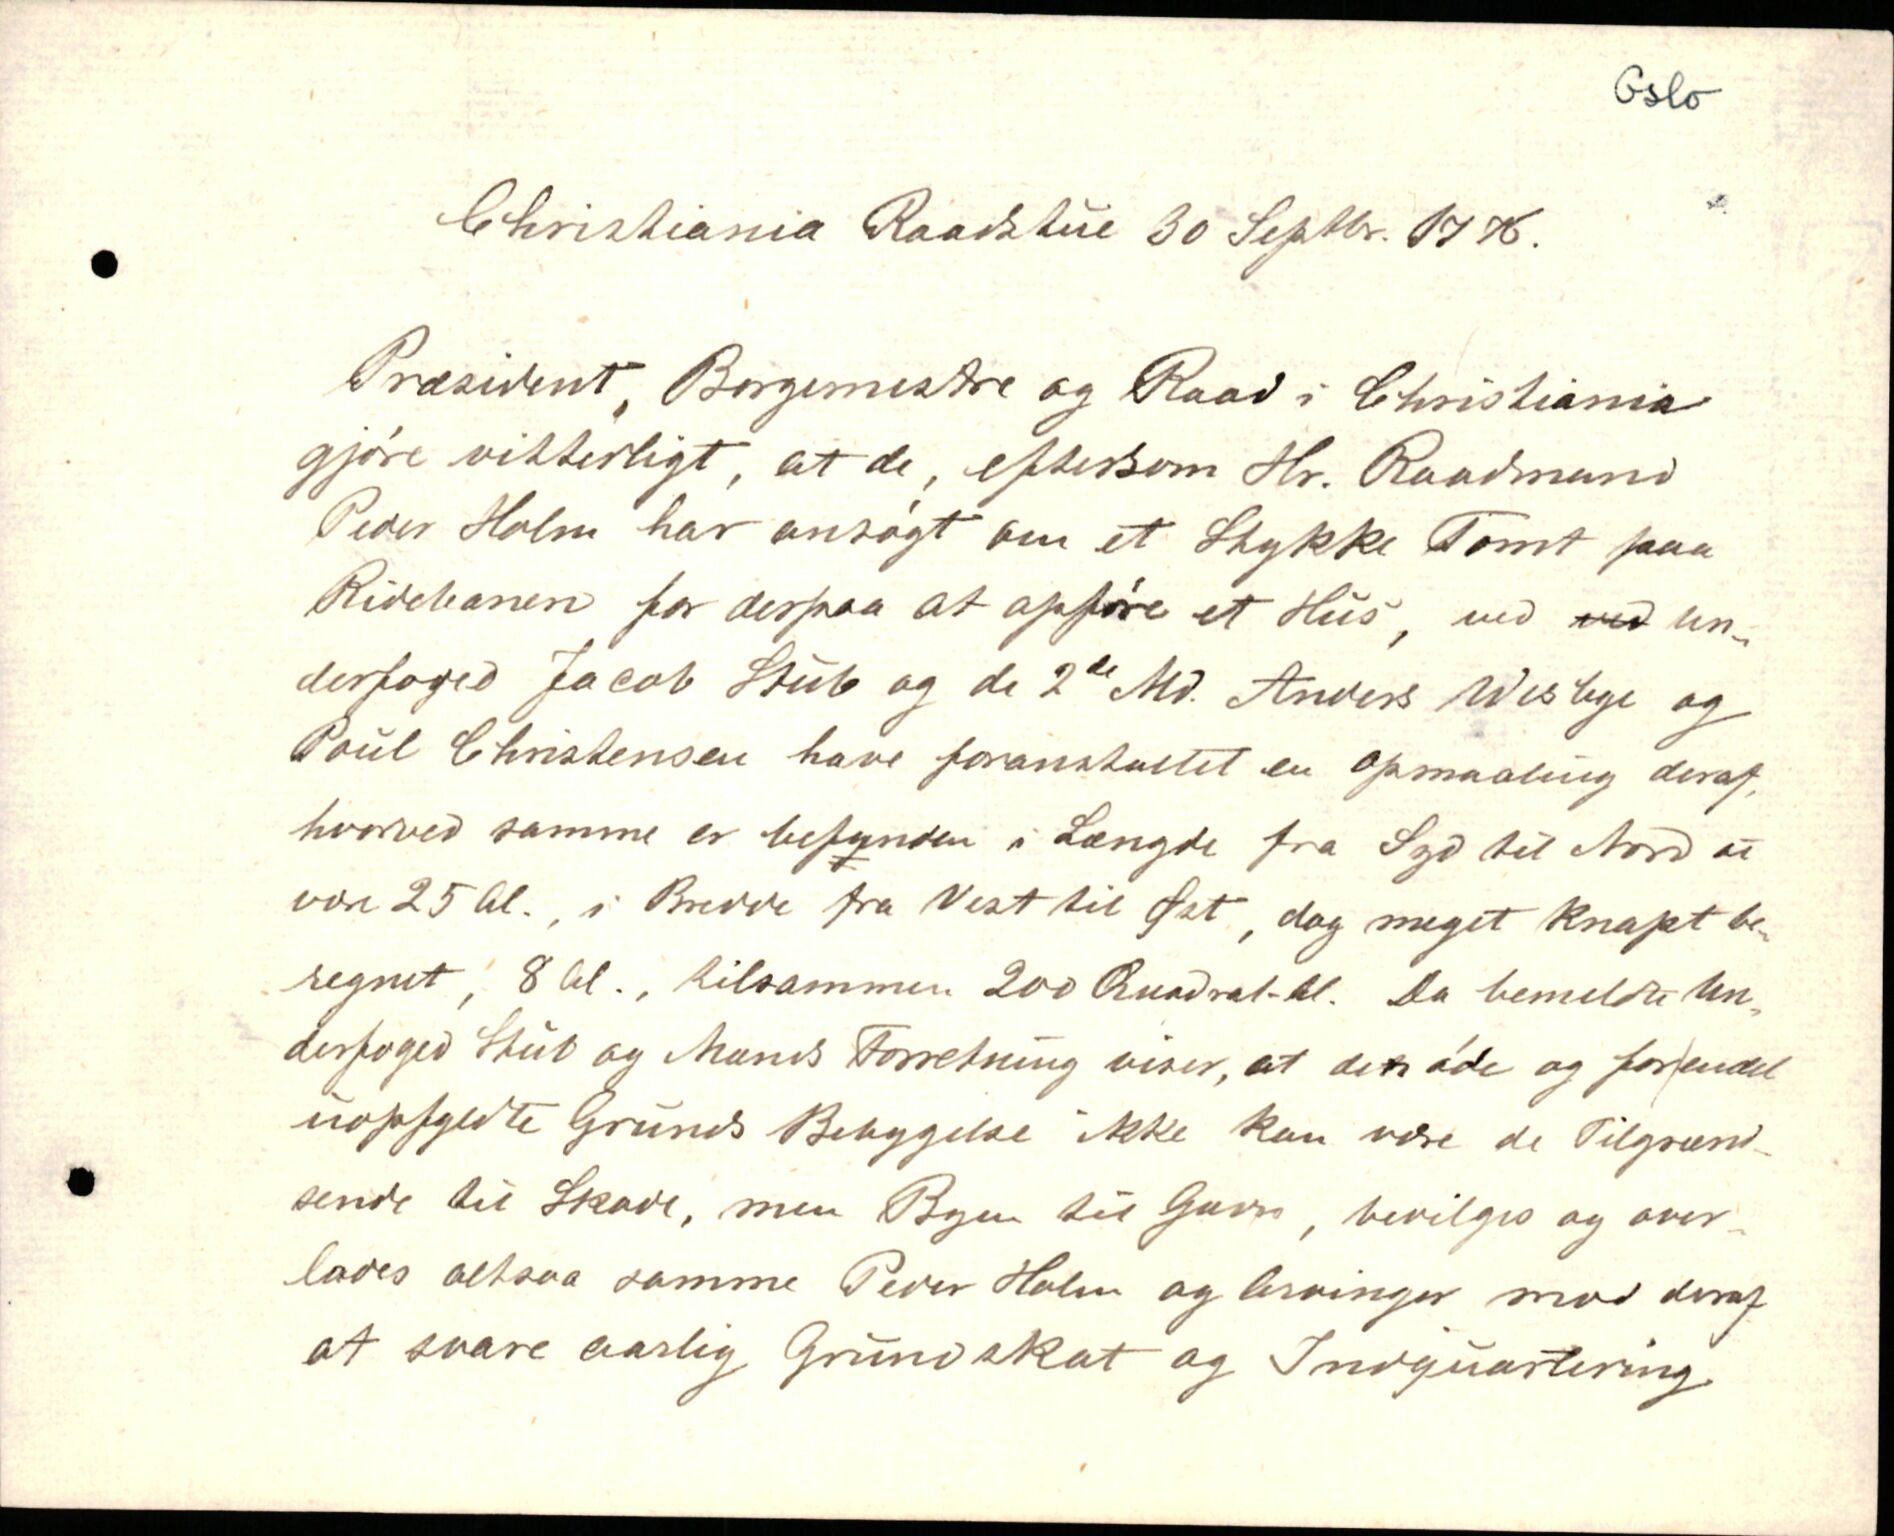 Oslo
Christiania Raadstue 30 Septbr. 1776.
Præsident, Borgemestre og Raad i Christiania
gjöre vitterligt, at de, eftersom Hr. Raadmand
Peder Holm har ansögt om et Stykke Tomt paa
Ridebanen for derpaa at opföre et Hus, ved ved Un-
derfoged Jacob Stub og de 2de Md. Anders Wesbye og
Poul Christensen have foranstaltet en Opmaaling deraf,
hvorved samme er befunden i Længde fra Syd til Nord at
være 25 Al., i Bredde fra Vest til Øst, dog meget knapt be-
regnet, 8 Al., tilsammen 200 Quadrat-Al. Da bemeldte Un-
derfoged Stub og Mænds Forretning viser, at den öde og for endel
uopfyldte Grunds Bebyggelse ikke kan være de Tilgrænd-
sende til Skade, men Byen til Gavn, bevilges og over-
lades altsaa samme Peder Holm og Arvinger mod deraf
at svare aarlig Grundskat og Indquartering